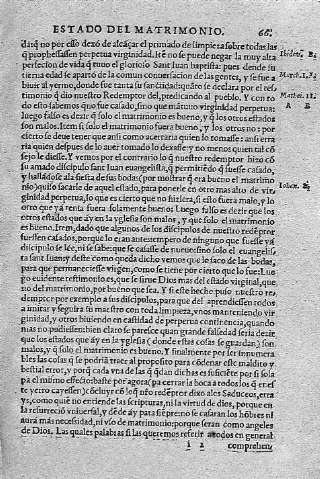 ESTADO DEL MATRIMONIO. 66.
dan q no por esso dexó de alcāçar el primado de limpieza sobre todas las
q prophessassen perpetua virginidad. Ité no se puede negar la muy alta
perfecion de vida q tuuo el glorioso Sant Iuan baptista: pues dende su
tierna edad se apartó de la comun conuersacion de las gentes, y se fue a
biuir al yermo, donde fue tanta su sanctidad:quāto se declara por el tes
timonio q dio nuestro Redemptor del, predicando al pueblo. Y con to
do esto sabemos q no fue casado, sino que mātuuo virginidad perpetua:
luego falso es dezir q solo el matrimonio es bueno, y q los otros estados
son malos. Item si solo el matrimonio fuera bueno, y los otros no: por
cierto se deue tener que ansi como acertaria quien lo tomasse: ansi erra
ria quien despues de lo auer tomado lo dexasse: y no menos quien tal cō
sejo le diesse. Y vemos por el contrario q nuestro redemptor hizo cō
su amado discipulo Sant Iuan euangelista, q permitiédo q fuesse casado,
y hallādose ala fiesta de sus bodas (por mostrar q era bueno el matrimo
nio) quiso sacarle de aquel estado, para ponerle en otro mas alto de vir
ginidad perpetua, lo que es cierto que no hiziera, si esto fuera malo, y lo
otro que ya tenia fuera solamente bueno. Luego falso es dezir que los
otros estados que ay en la yglesia son malos, y que solo el matrimonio
es bueno. Item, dado que algunos de los discipulos de nuestro redéptor
fuessen casados, porque lo eran antes
dicipulo se lee, ni se sabe que se casasse de nueuo: sino solo el euangelis
ta sant Iuan: y deste como queda dicho vemos que le saco de las bodas,
para que permaneciesse virgen, como se tiene por cierto que lo fue: Lue
go euidente testimonio es, que se sirue Dios mas del estado virginal, que
no del matrimonio, por bueno que sea. Y si este hecho puso nuestro re
demptor por exemplo a sus discipulos, para que del aprendiessen todos
a imitar y seguir a su maestro con toda limpieza, vnos manteniendo vir
ginidad, y otros biuiendo en castidad de perpetua continencia, quando
mas no pudiessen: bien claro se parece quan grande falsedad seria dezir,
que los estados que ay en la yglesia (donde estas cosas se guardan) son
malos, y q solo el matrimonio es bueno. Y finalmente por ser innumera
bles las cosas q se podriā traer al proposito para cōdenar este maldito y
bestial error, y porq cada vna de las q q dan dichas es suficiéte por si sola
pa el mismo effecto: baste por agora
como no entiende las scripturas, ni la virtud de dios, porque en
la resurreciō vniuersal, y dēde ay para siépre no se casaran los hōbres ni
aura mas necessidad, ni vso de matrimonio: porque seran como angeles
de Dios. Las quales palabras si las queremos referir a todos en general
i 2 comprehen
Ibidem.
March. 1.
Matth. 11.
A B
Iohan.